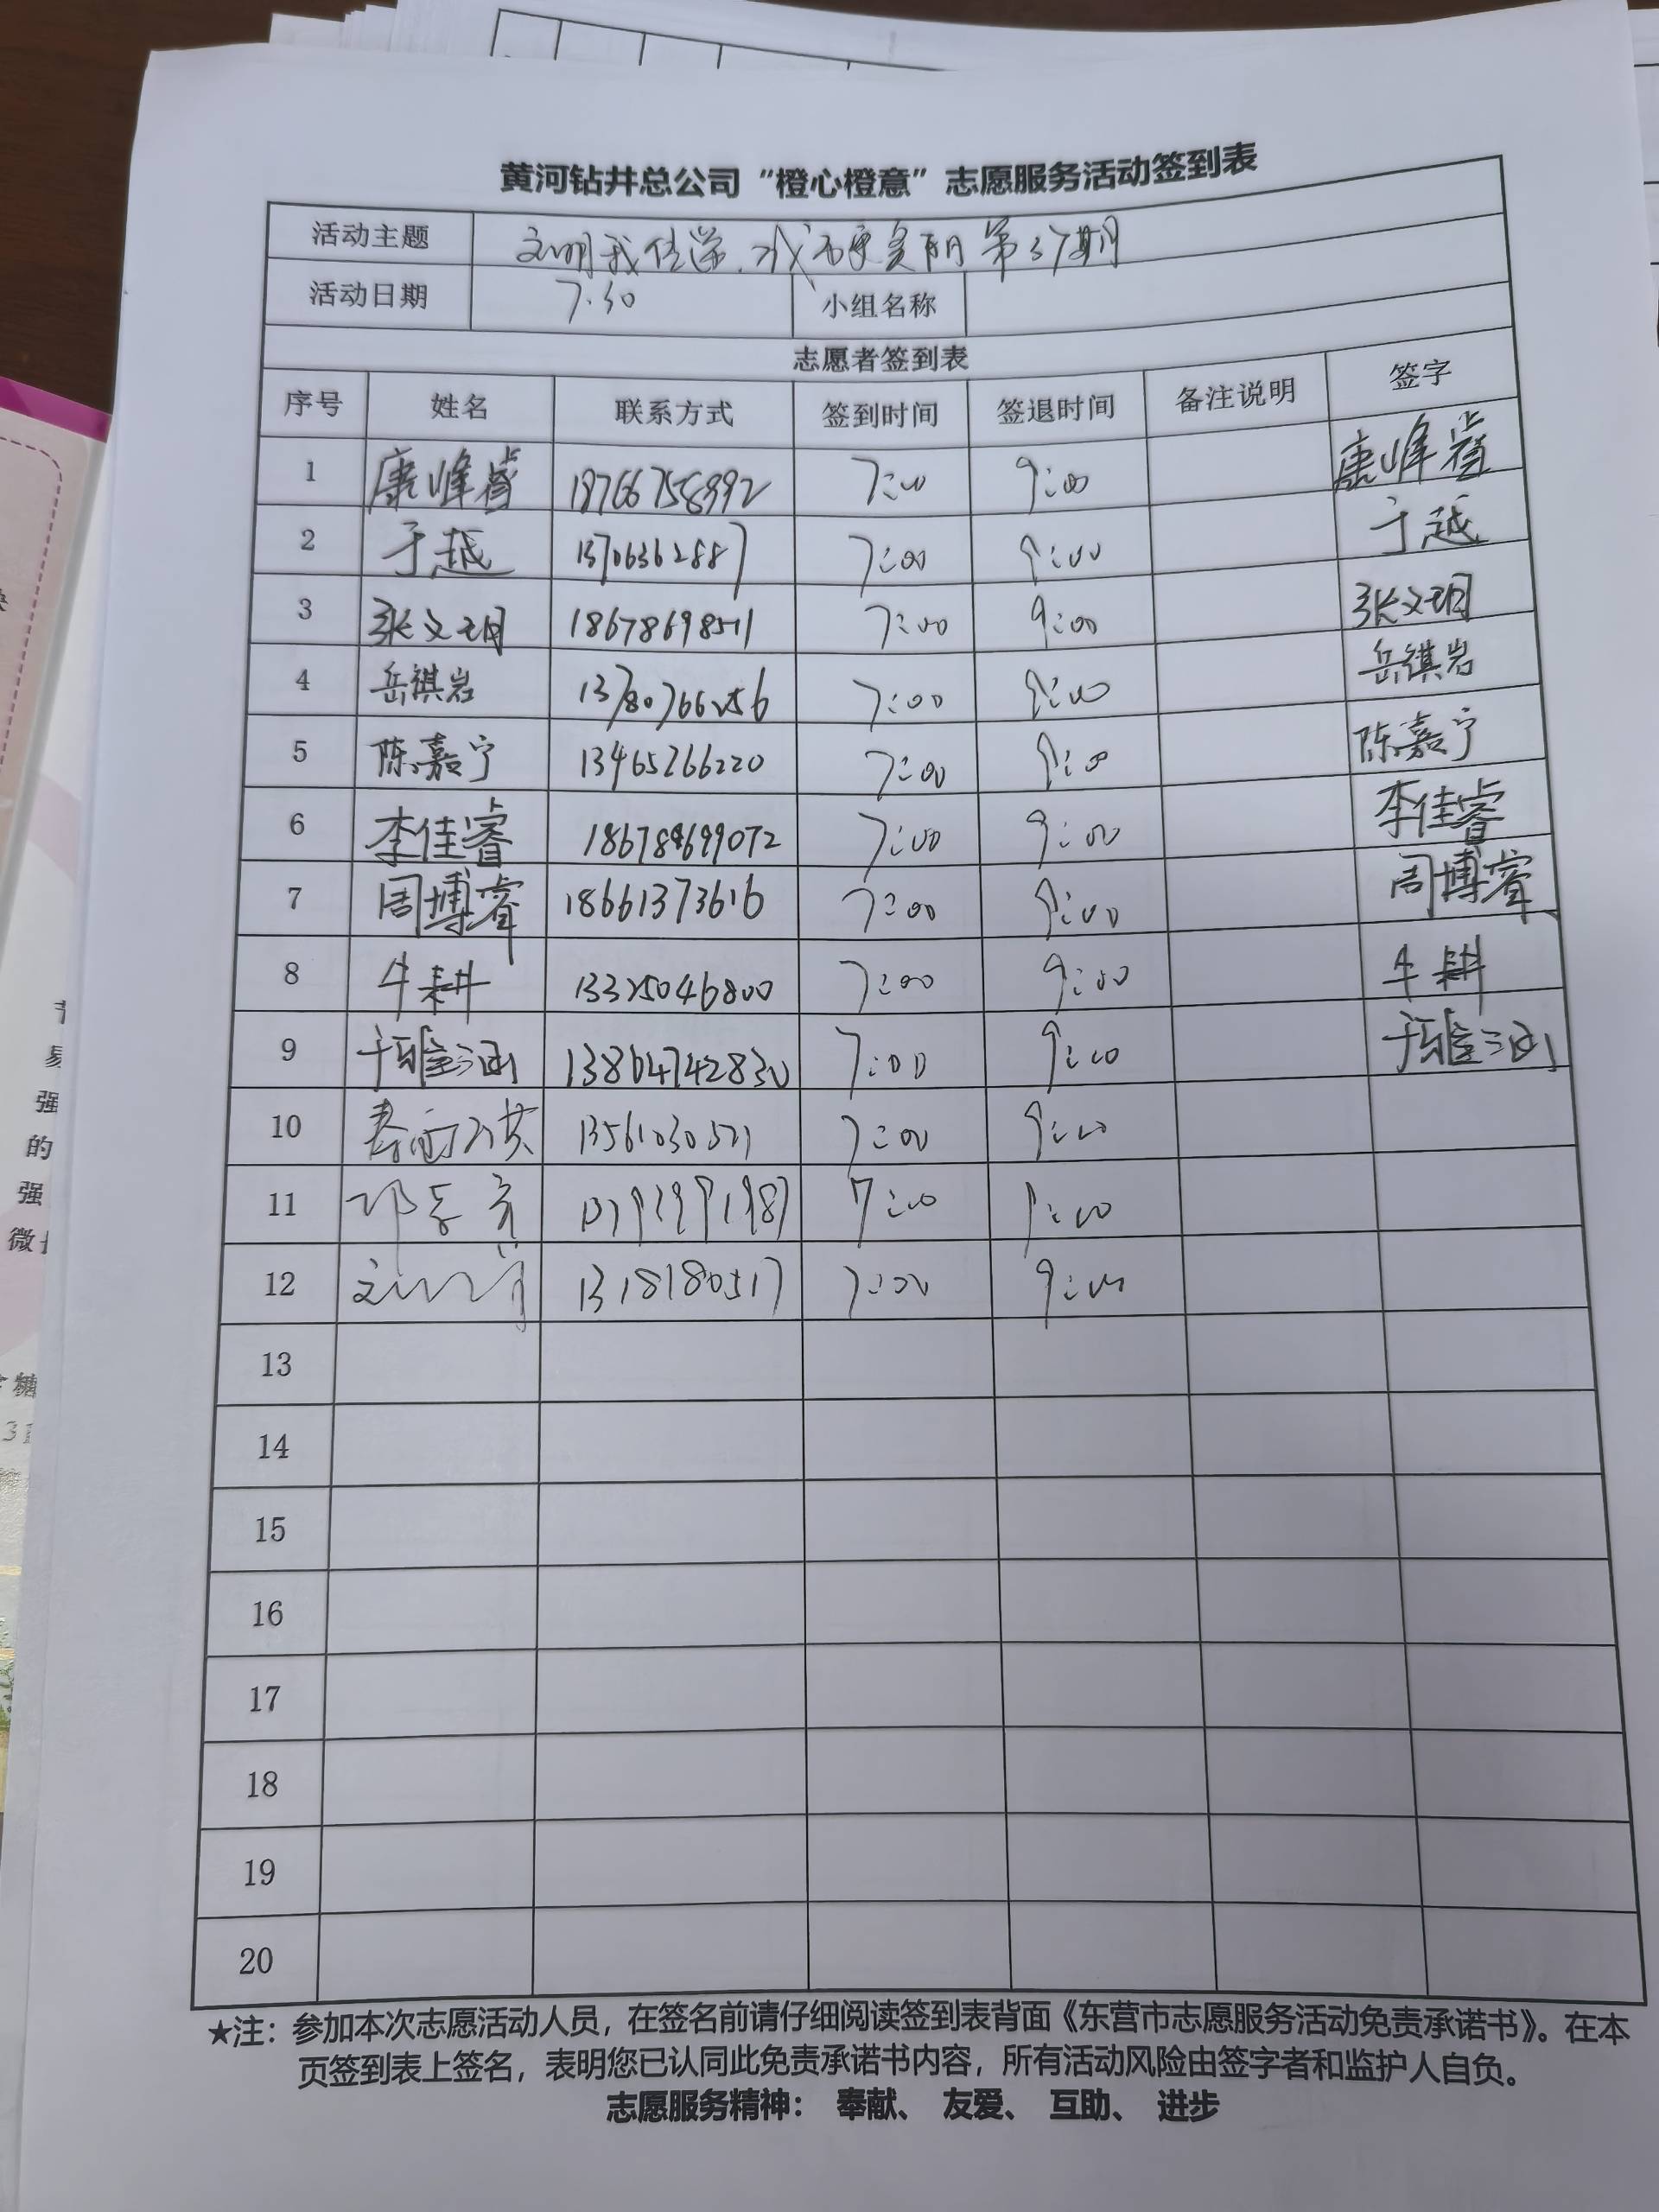 黄河钻井总公司“橙心橙意”志愿服务活动签到表
活动主题 文明我传递
活动日期 7.30 小组名称
志愿者签到表
序号 姓名 联系方式 签到时间 签退时间 备注说明 签字
1 19766758992 7:00 9:00
2 于越 13706362887 7:00 9:00 于越
3 张文玥 18678698511 7:00 9:00 张文玥
4 岳祺岩 13780766256 7:00 9:00 岳祺岩
5 陈嘉宁 13465266220 7:00 9:00 陈嘉宁
6 李佳睿 7:00 9:00 李佳睿
7 周博睿 18661373616 7:00 9:00 周博睿
8 牛耕 13325046800 7:00 9:00 牛耕
9 于雅涵 13864742830 7:00 9:00 于雅涵
10 7:00 9:00
11 7:00 9:00
12 7:00 9:00
13
14
15
16
17
18
19
20
★注：参加本次志愿活动人员，在签名前请仔细阅读签到表背面《东营市志愿服务活动免责承诺书》。在本
页签到表上签名，表明您已认同此免责承诺书内容，所有活动风险由签字者和监护人自负。
志愿服务精神： 奉献、 友爱、 互助、 进步